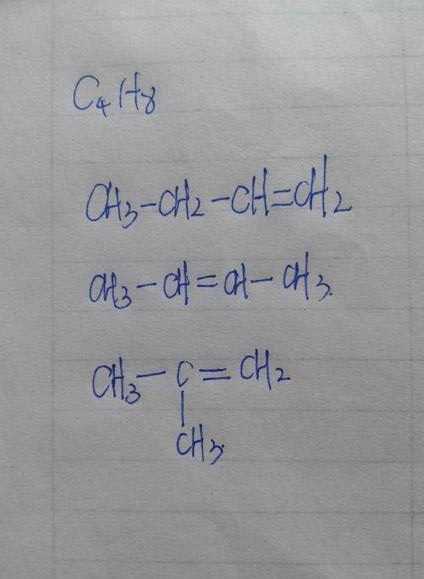 C₄H₈
CH₃-CH₂-CH=CH₂
CH₃-CH=CH-CH₃.
CH₃-C=CH₂
|
CH₃